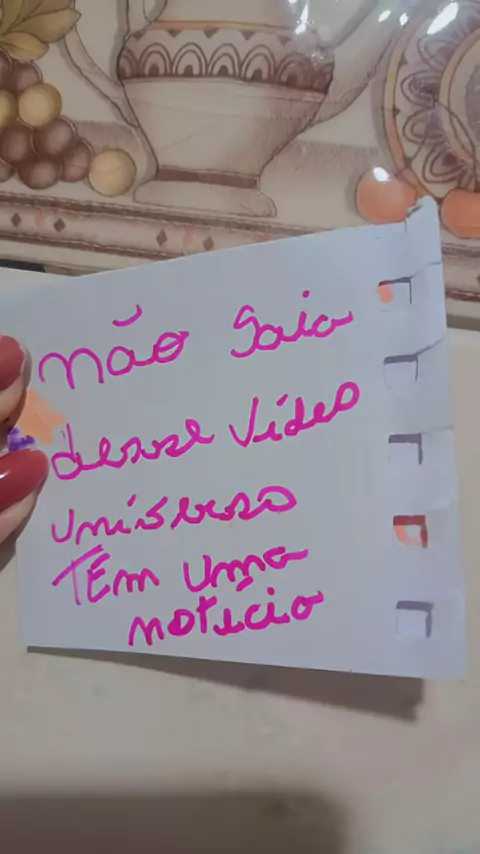 não saia
desse vídeo
universo
TEm uma
notícia